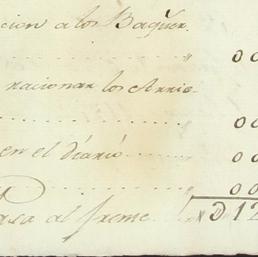 cion a los Baqueꝛ.
" 00
racionar los Arrie-
" 00
en el diario " 00
" 00
Pasa al frente 012